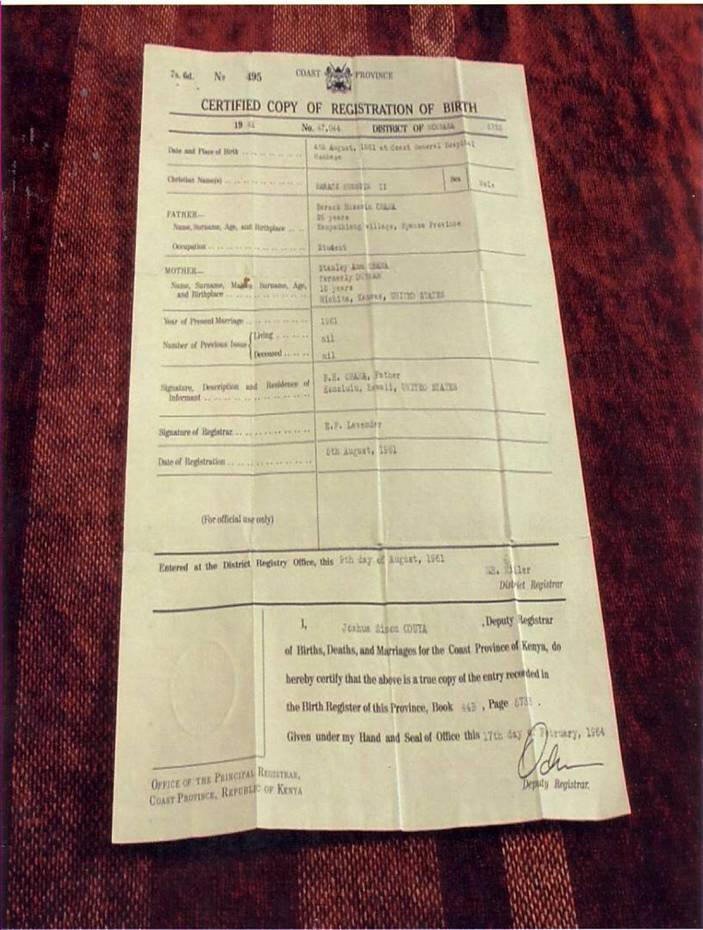 7s. 6d. No 495 COAST PROVINCE
CERTIFIED COPY OF REGISTRATION OF BIRTH
19 61 No. 47,044 DISTRICT OF MOMBASA
Date and Place of Birth 4th August, 1961 at Coast General Hospital
Mombasa
Christian Name(s) BARACK HUSSEIN II Sex Male
FATHER— Barack Hussein OBAMA
Name, Surname, Age, and Birthplace village, Nyanza Province
Occupation Student
MOTHER— Stanley Ann OBAMA
formerly DUNHAM
Name, Surname, Maiden Surname, Age, 18 years
and Birthplace Wichita, Kansas, UNITED STATES
Year of Present Marriage 1961
Number of Previous Issue Living nil
Deceased nil
Signature, Description and Residence of B.H. OBAMA, Father
Informant Honolulu, Hawaii, UNITED STATES
Signature of Registrar E.F. Lavender
Date of Registration 5th August, 1961
(For official use only)
Entered at the District Registry Office, this 9th day of August, 1961
Miller
District Registrar
I, Joshua Simon ODUYA, Deputy Registrar
of Births, Deaths, and Marriages for the Coast Province of Kenya, do
hereby certify that the above is a true copy of the entry recorded in
the Birth Register of this Province, Book 44B, Page
Given under my Hand and Seal of Office this 17th day of February, 1964
Deputy Registrar.
OFFICE OF THE PRINCIPAL REGISTRAR,
COAST PROVINCE, REPUBLIC OF KENYA